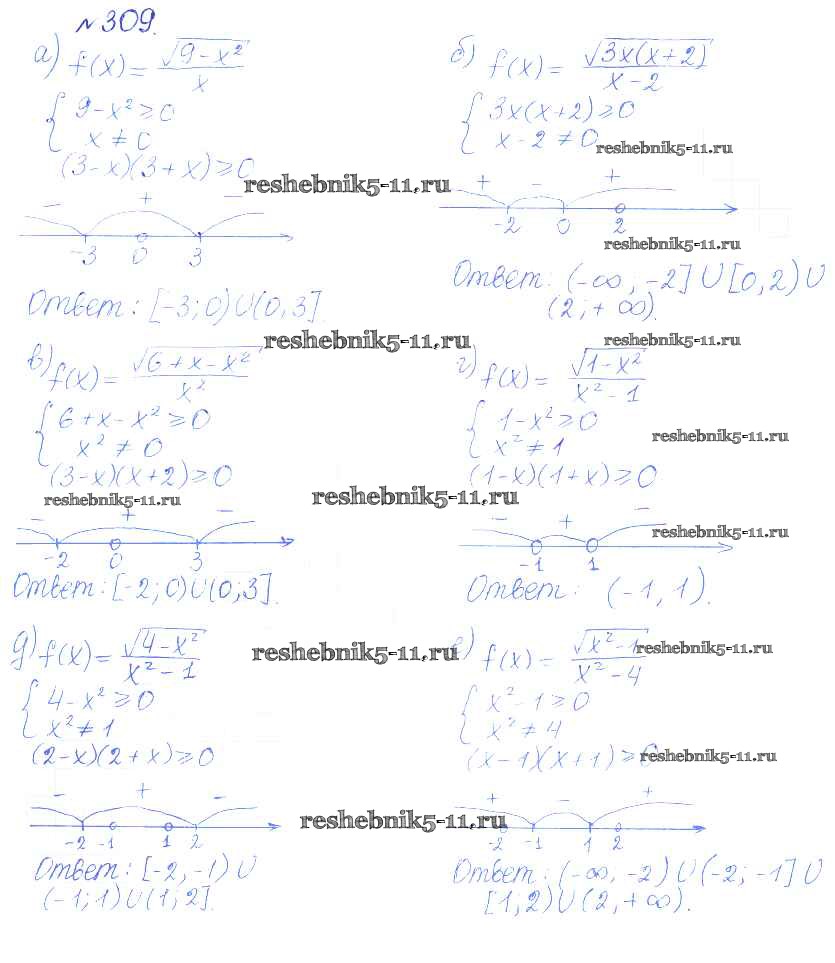 №309.
а) f(x) = √(9-x²)/x
{ 9-x² ≥ 0
x ≠ 0
(3-x)(3+x) ≥ 0
reshebnik5-11.ru
− + −
-3 0 3
Ответ: [-3; 0)∪(0, 3].
б) f(x) = √(3x(x+2))/(x-2)
{ 3x(x+2) ≥ 0
x-2 ≠ 0
reshebnik5-11.ru
+ − +
-2 0 2
reshebnik5-11.ru
Ответ: (-∞; -2] ∪ [0, 2) ∪
(2; +∞).
reshebnik5-11.ru
reshebnik5-11.ru
в) f(x) = √(6+x-x²)/x²
{ 6+x-x² ≥ 0
x² ≠ 0
(3-x)(x+2) ≥ 0
reshebnik5-11.ru
reshebnik5-11.ru
− + −
-2 0 3
Ответ: [-2; 0)∪(0; 3].
г) f(x) = √(1-x²)/(x²-1)
{ 1-x² ≥ 0
x² ≠ 1
reshebnik5-11.ru
(1-x)(1+x) ≥ 0
− + −
reshebnik5-11.ru
-1 1
Ответ: (-1, 1).
д) f(x) = √(4-x²)/(x²-1)
reshebnik5-11.ru
{ 4-x² ≥ 0
x² ≠ 1
(2-x)(2+x) ≥ 0
− + −
-2 -1 1 2
reshebnik5-11.ru
Ответ: [-2, -1) ∪
(-1; 1)∪(1; 2].
е) f(x) = √(x²-1)/(x²-4)
reshebnik5-11.ru
{ x²-1 ≥ 0
x² ≠ 4
(x-1)(x+1) ≥ 0
reshebnik5-11.ru
+ − +
-2 -1 1 2
Ответ: (-∞, -2) ∪ (-2; -1] ∪
[1; 2)∪(2, +∞).